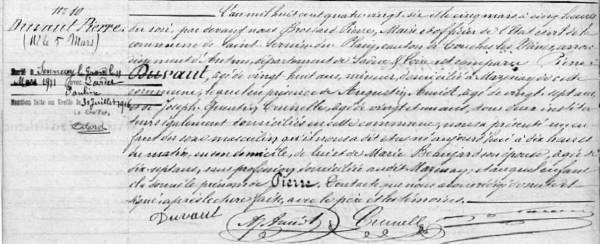 N° 10
Durant Pierre
(Né le 5 Mars)
Marié à
Mars 1911 avec
Pauline
Mention faite au Greffe le 31 Juillet
Le Greffier,
L'an mil huit cent quatre vingt six et le cinq mars à cinq heures
du soir, par devant nous Brossard Pierre, Maire et officier de l'Etat civil de la
commune de Saint Sernin du Plain, canton de Couches les Mines, arron-
dissement d'Autun, département de Saône & Loire est comparu Pierre
Durant, âgé de vingt huit ans, mineur, domicilié à Mazenay de cette
commune, lequel en présence de Augustin Amiot, âgé de vingt sept ans,
et de Joseph Quentin Prunelle, âgé de vingt et un ans, tous deux institu-
teurs également domiciliés en cette commune, nous a présenté un en-
fant du sexe masculin, qu'il nous a dit être né aujourd'hui à dix heures
du matin, en son domicile, de lui et de Marie Beaujard son épouse, âgée de
dix sept ans, sans profession, domiciliée audit Mazenay, et auquel enfant
il a donné le prénom de Pierre. Dont acte que nous avons rédigé
signé après lecture faite, avec le père et les témoins.
Durant
A. Amiot
Prunelle